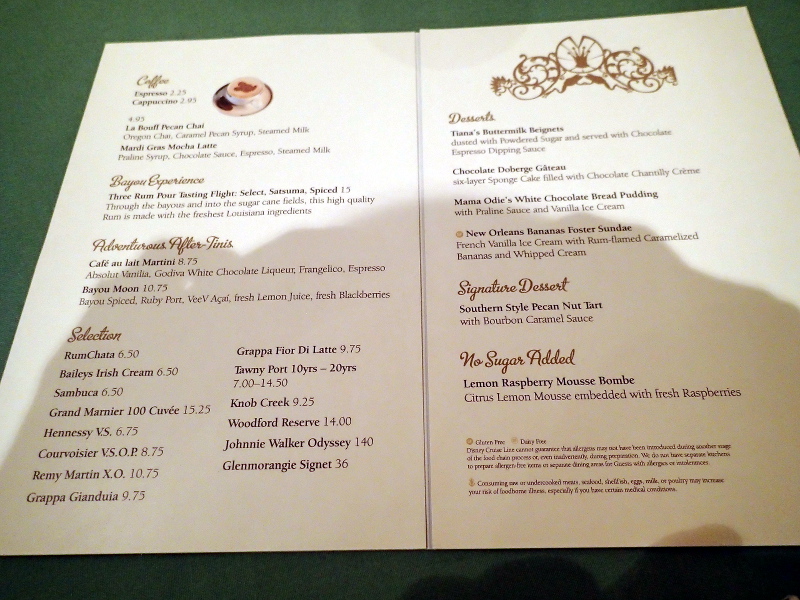 Coffee
Espresso 2.25
Cappuccino 2.95
4.95
La Bouff Pecan Chai
Oregon Chai, Caramel Pecan Syrup, Steamed Milk
Mardi Gras Mocha Latte
Praline Syrup, Chocolate Sauce, Espresso, Steamed Milk
Bayou Experience
Three Rum Pour Tasting Flight: Select, Satsuma, Spiced 15
Through the bayous and into the sugar cane fields, this high quality
Rum is made with the freshest Louisiana ingredients
Adventurous After-Tinis
Café au lait Martini 8.75
Absolut Vanilia, Godiva White Chocolate Liqueur, Frangelico, Espresso
Bayou Moon 10.75
Bayou Spiced, Ruby Port, VeeV Açaí, fresh Lemon Juice, fresh Blackberries
Selection
RumChata 6.50
Baileys Irish Cream 6.50
Sambuca 6.50
Grand Marnier 100 Cuvée 15.25
Hennessy V.S. 6.75
Courvoisier V.S.O.P. 8.75
Remy Martin X.O. 10.75
Grappa Gianduia 9.75
Grappa Fior Di Latte 9.75
Tawny Port 10yrs – 20yrs
7.00–14.50
Knob Creek 9.25
Woodford Reserve 14.00
Johnnie Walker Odyssey 140
Glenmorangie Signet 36
Desserts
Tiana's Buttermilk Beignets
dusted with Powdered Sugar and served with Chocolate
Espresso Dipping Sauce
Chocolate Doberge Gâteau
six-layer Sponge Cake filled with Chocolate Chantilly Crème
Mama Odie's White Chocolate Bread Pudding
with Praline Sauce and Vanilla Ice Cream
New Orleans Bananas Foster Sundae
French Vanilla Ice Cream with Rum-flamed Caramelized
Bananas and Whipped Cream
Signature Dessert
Southern Style Pecan Nut Tart
with Bourbon Caramel Sauce
No Sugar Added
Lemon Raspberry Mousse Bombe
Citrus Lemon Mousse embedded with fresh Raspberries
Gluten Free Dairy Free
Disney Cruise Line cannot guarantee that allergens may not have been introduced during another stage
of the food chain process or, even inadvertently, during preparation. We do not have separate kitchens
to prepare allergen-free items or separate dining areas for Guests with allergies or intolerances.
Consuming raw or undercooked meats, seafood, shellfish, eggs, milk, or poultry may increase
your risk of foodborne illness, especially if you have certain medical conditions.